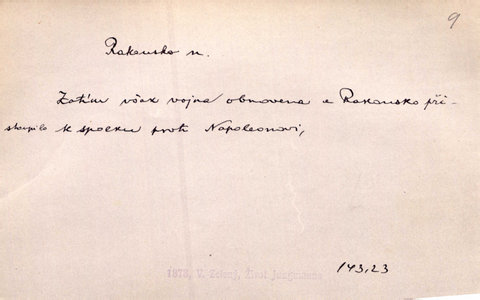 9
Rakousko n.
Zatím však vojna obnovena a Rakousko při-
stoupilo k spolku proti Napoleonovi,
143,23
1873, V. Zelený, Život Jungmanna